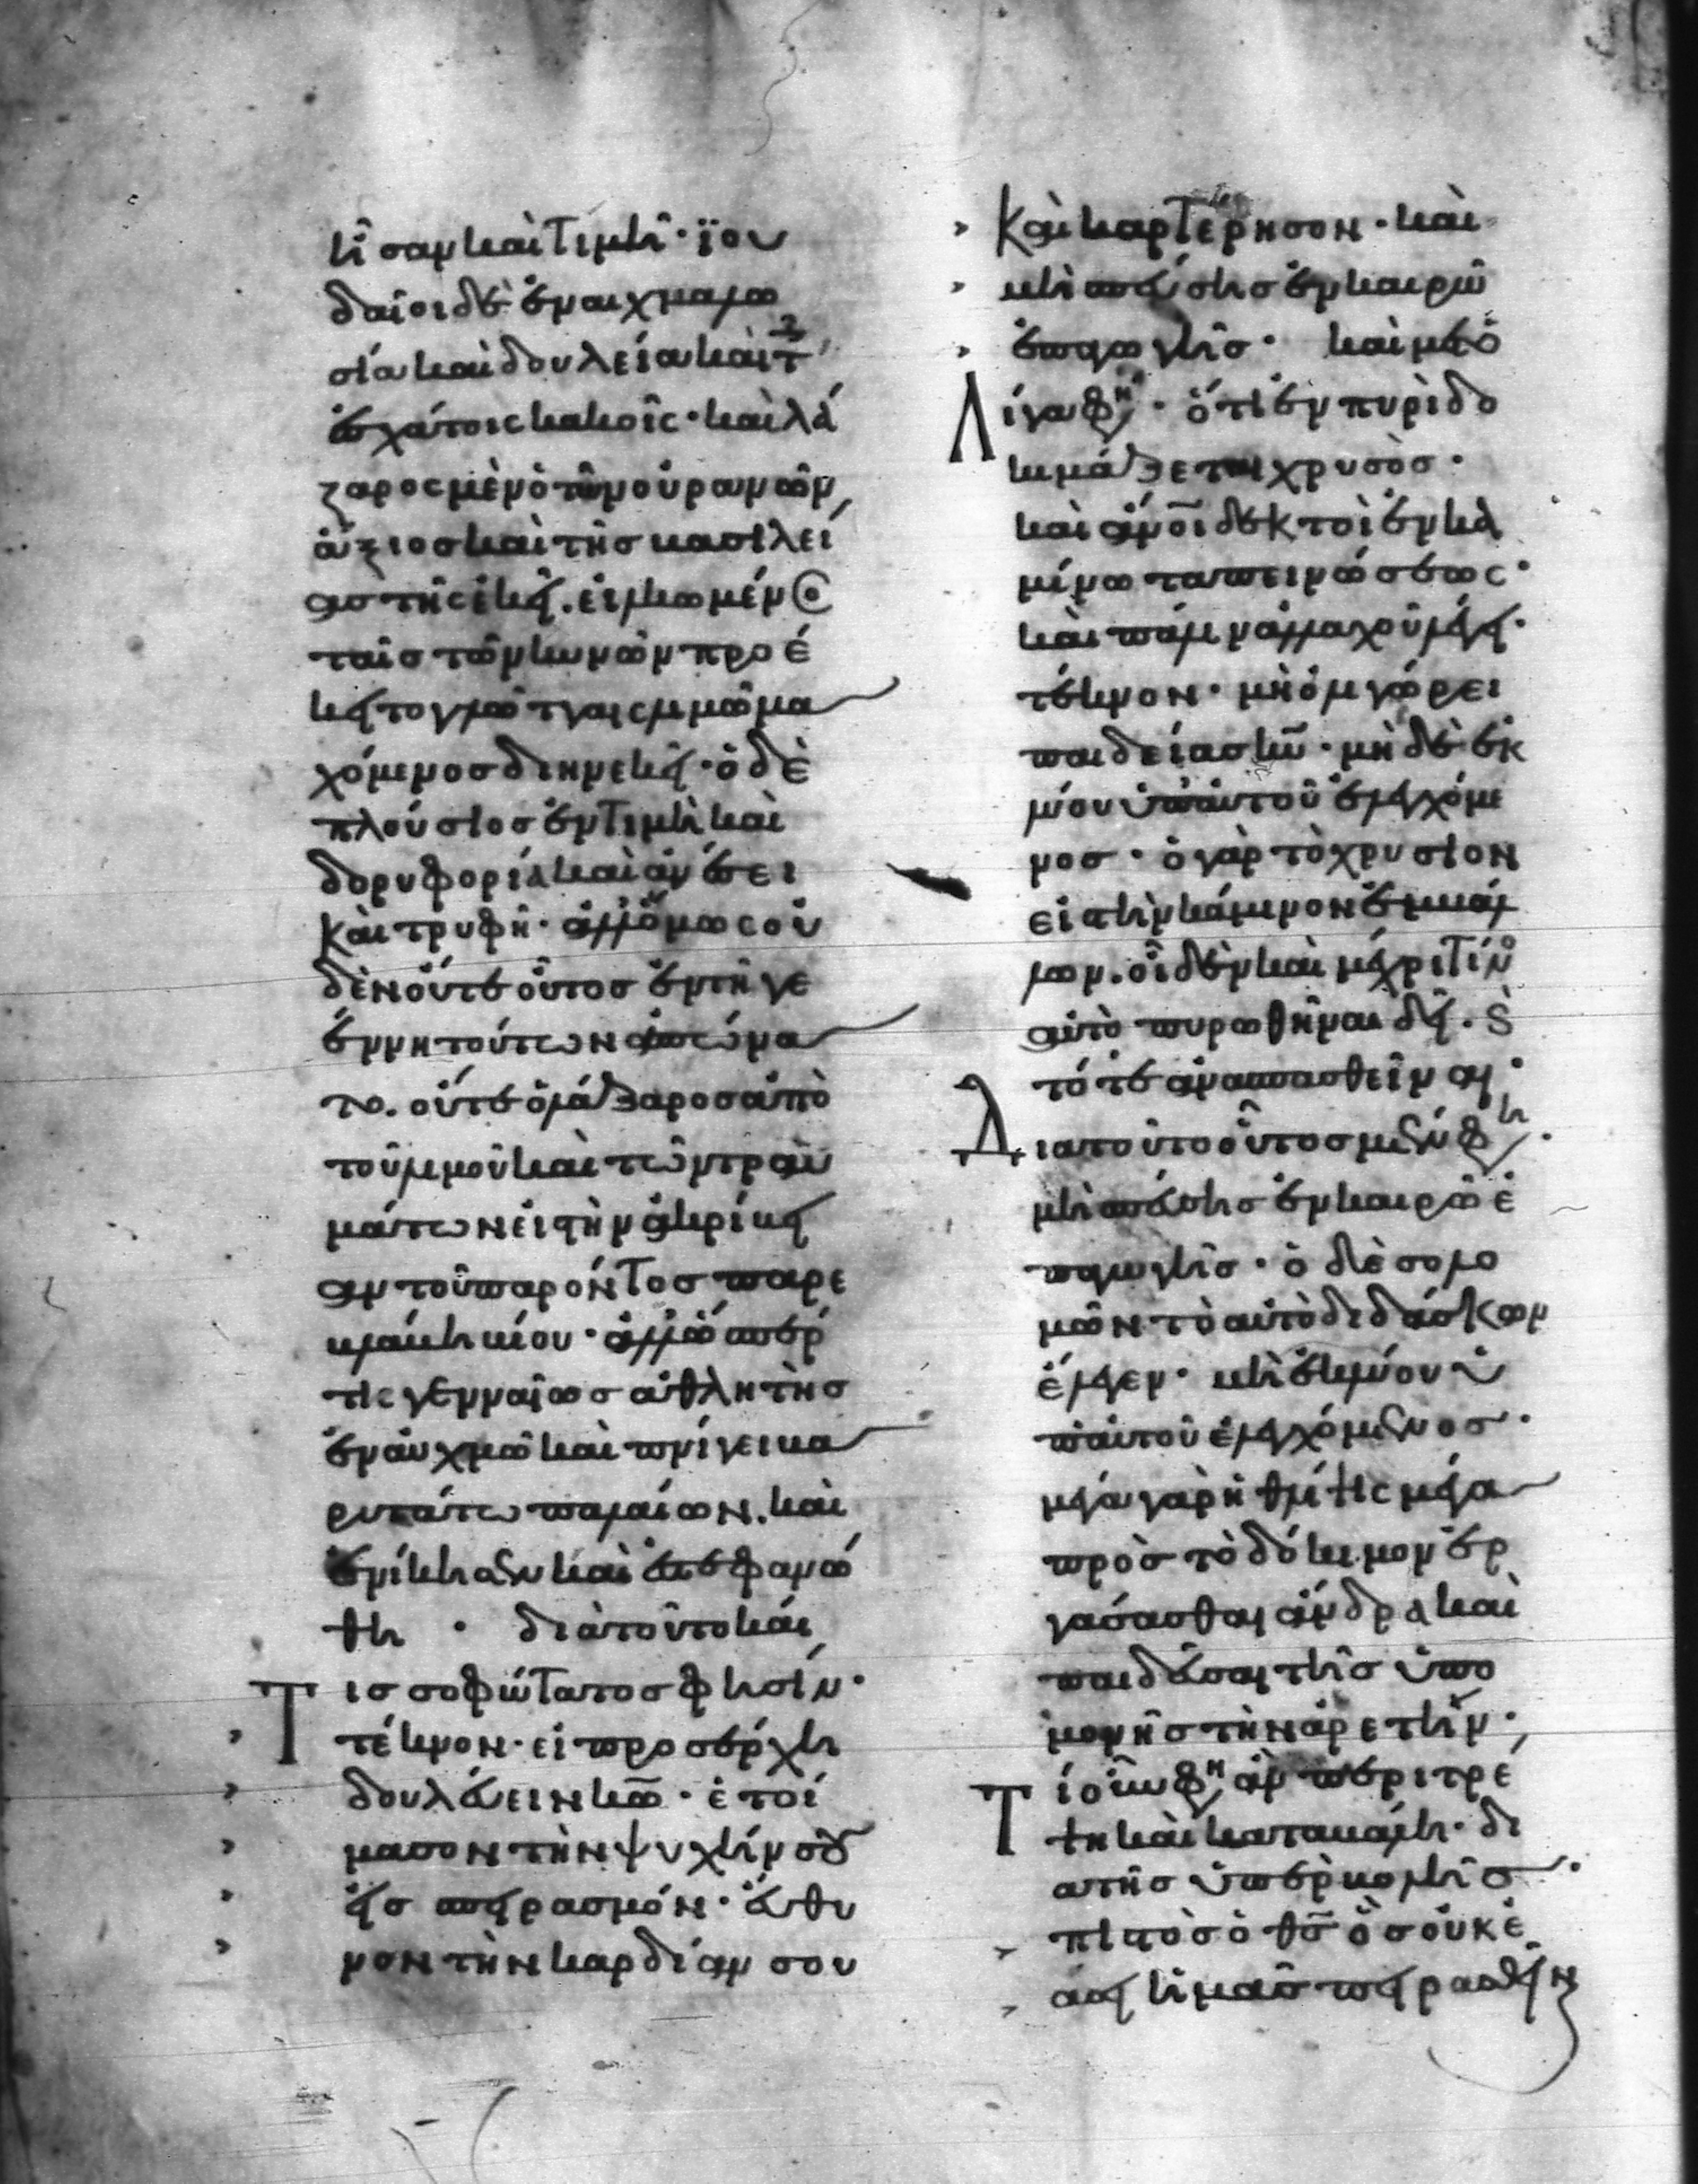 ἦσαν καὶ τιμῆ· ϊου
δαῖοι δὲ ἐν αἰχμαλω
σία καὶ δουλεία καὶ τ
ἐσχάτοις κακοῖς· καὶ λά
ζαρος μὲν ὁ τῶν οὐρανῶν
ἄξιος καὶ τῆς βασιλεί
ας τῆς ἐκεῖ. εἱλκωμένος
ταῖς τῶν κυνῶν προέ
κειτο γλώτταις λιμῶ μα
χόμενος διηνεκεῖ· ὁ δὲ
πλούσιος ἐν τιμῆ καὶ
δορυφορία καὶ ἀνέσει
καὶ τρυφῆ· ἀλλ' ὅμως οὐ
δὲν οὔτε οὗτος ἐν τῆ γε
έννη τούτων ἀπώνα
το. οὔτε ὁ λάζαρος ἀπὸ
τοῦ λιμοῦ καὶ τῶν τραυ
μάτων εἰς τὴν ἀκρίβει
αν τοῦ παρόντος παρε
βλάβη βίου· ἀλλ' ὥσπέρ
τις γενναῖος ἀθλητὴς
ἐν αὐχμῶ καὶ πνίγει βα
ρυτάτω παλαίων. καὶ
ἐνίκησεν καὶ ἐστεφανώ
θη · διὰ τοῦτο καί
Τις σοφώτατος φησίν·
τέκνον· εἰ προσέρχη
δουλεύειν κω· ἑτοί
μασον τὴν ψυχήν σου
εἰς πειρασμόν· εὔθυ
νον τὴν καρδίαν σου
Καὶ καρτέρησον· καὶ
μὴ σπεύσης ἐν καιρῶ
ἐπαγωγῆς· καὶ μετ' ὀ
Λίγα φη· ὅτι ἐν πυρὶ δο
κιμάζεται χρυσὸς·
καὶ ἄνοι δεκτοὶ ἐν κα
μίνω ταπεινώσεως·
καὶ πάλιν ἀλλαχοῦ λέγει·
τέκνον· μὴ ὀλιγώρει
παιδείας κυ· μὴ δὲ ἐκ
λύου ὑπ' αὐτοῦ ἐλεγχόμε
νος· ὁ γὰρ τὸ χρυσίον
εἰς τὴν κάμινον ἐμβάλ
λων. οἶδεν καὶ μέχρι τίνο
αὐτὸ πυρωθῆναι δεῖ. ϛ
τότε ἀνασπασθεῖναι·
Διὰ τοῦτο οὗτος μὲν φη·
μὴ σπεύσης ἐν καιρῶ ἐ
παγωγῆς· ὁ δὲ σολο
μῶν τὸ αὐτὸ διδάσκων
ἔλεγεν· μὴ ἐκλύου ὑ
π' αὐτοῦ ἐλεγχόμενος·
μεγάλα γὰρ ἡ θλίψις μεγάλα
πρὸς τὸ δόκιμον ἐρ
γάσασθαι ἄνδρα καὶ
παιδεῦσαι τῆς ὑπο
μονῆς τὴν ἀρετήν·
Τί οὖν φη ἂν περιτρέ
ψη καὶ καταβάλη· δι
ὰ τῆς ὑπερβολῆς·
πιστὸς ὁ θς ὃς οὐκ ἐ
άσει ἡμᾶς πειρασθῆν